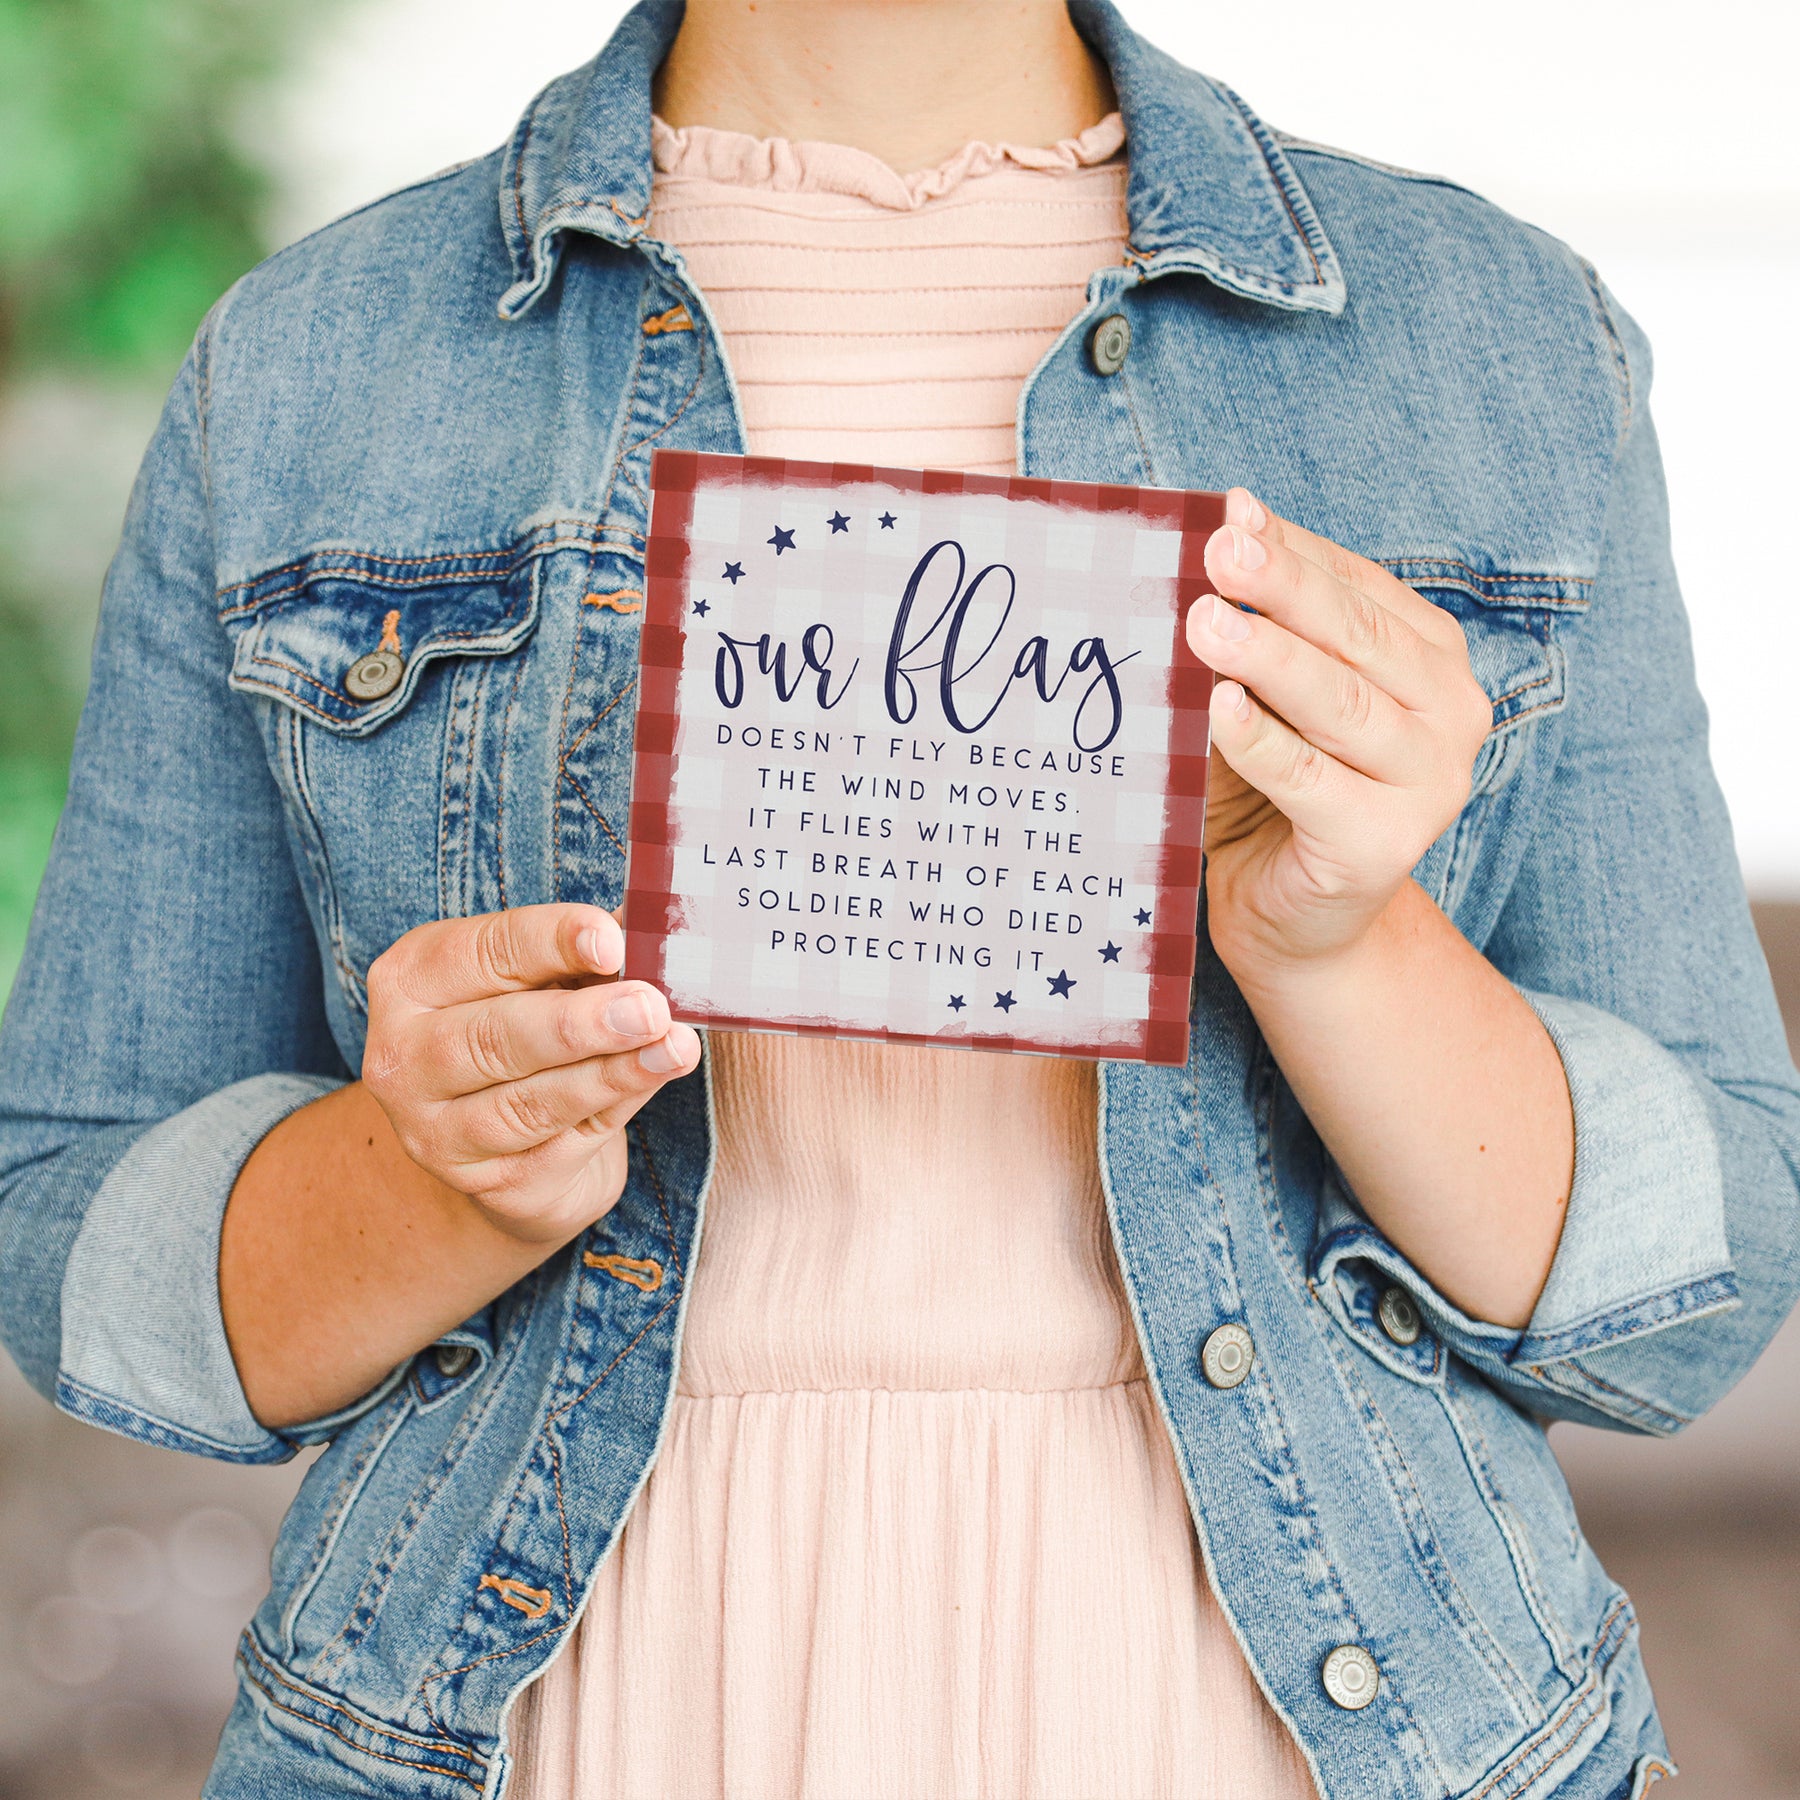 our flag
DOESN'T FLY BECAUSE
THE WIND MOVES.
IT FLIES WITH THE
LAST BREATH OF EACH
SOLDIER WHO DIED
PROTECTING IT
OLD NAVY